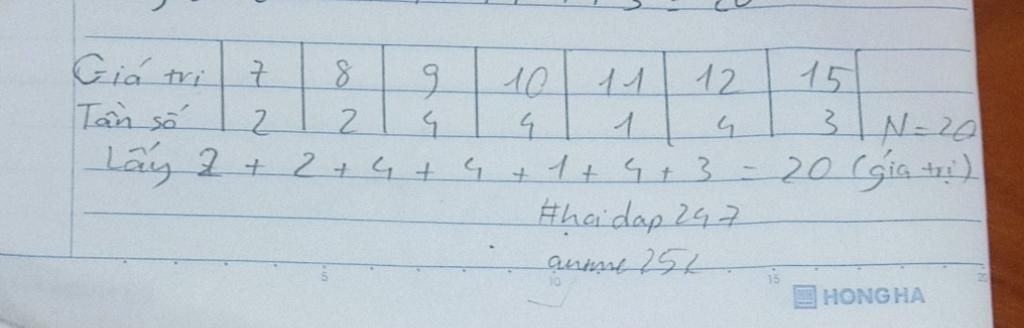 = 20
Giá trị 7 8 9 10 11 12 15
Tần số 2 2 4 4 1 4 3 N=20
Lấy 2 + 2 + 4 + 4 + 1 + 4 + 3 = 20 (giá trị)
#hoidap247
5 10 15 20
HONG HA